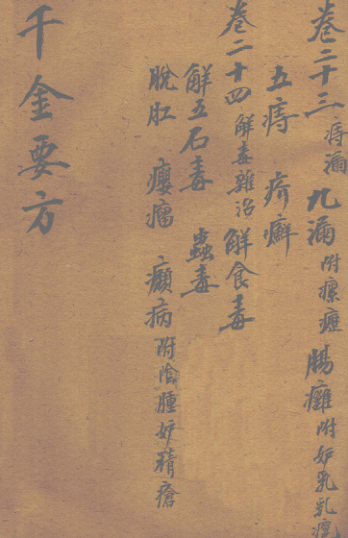 卷二十三 痔漏 九漏 附瘰癧 腸癰 附妒乳乳癰
五痔 疥癬
卷二十四 解毒雜治 解食毒
解五石毒 蠱毒
脫肛 癭瘤 癩病 附陰腫妒精瘡
千金要方